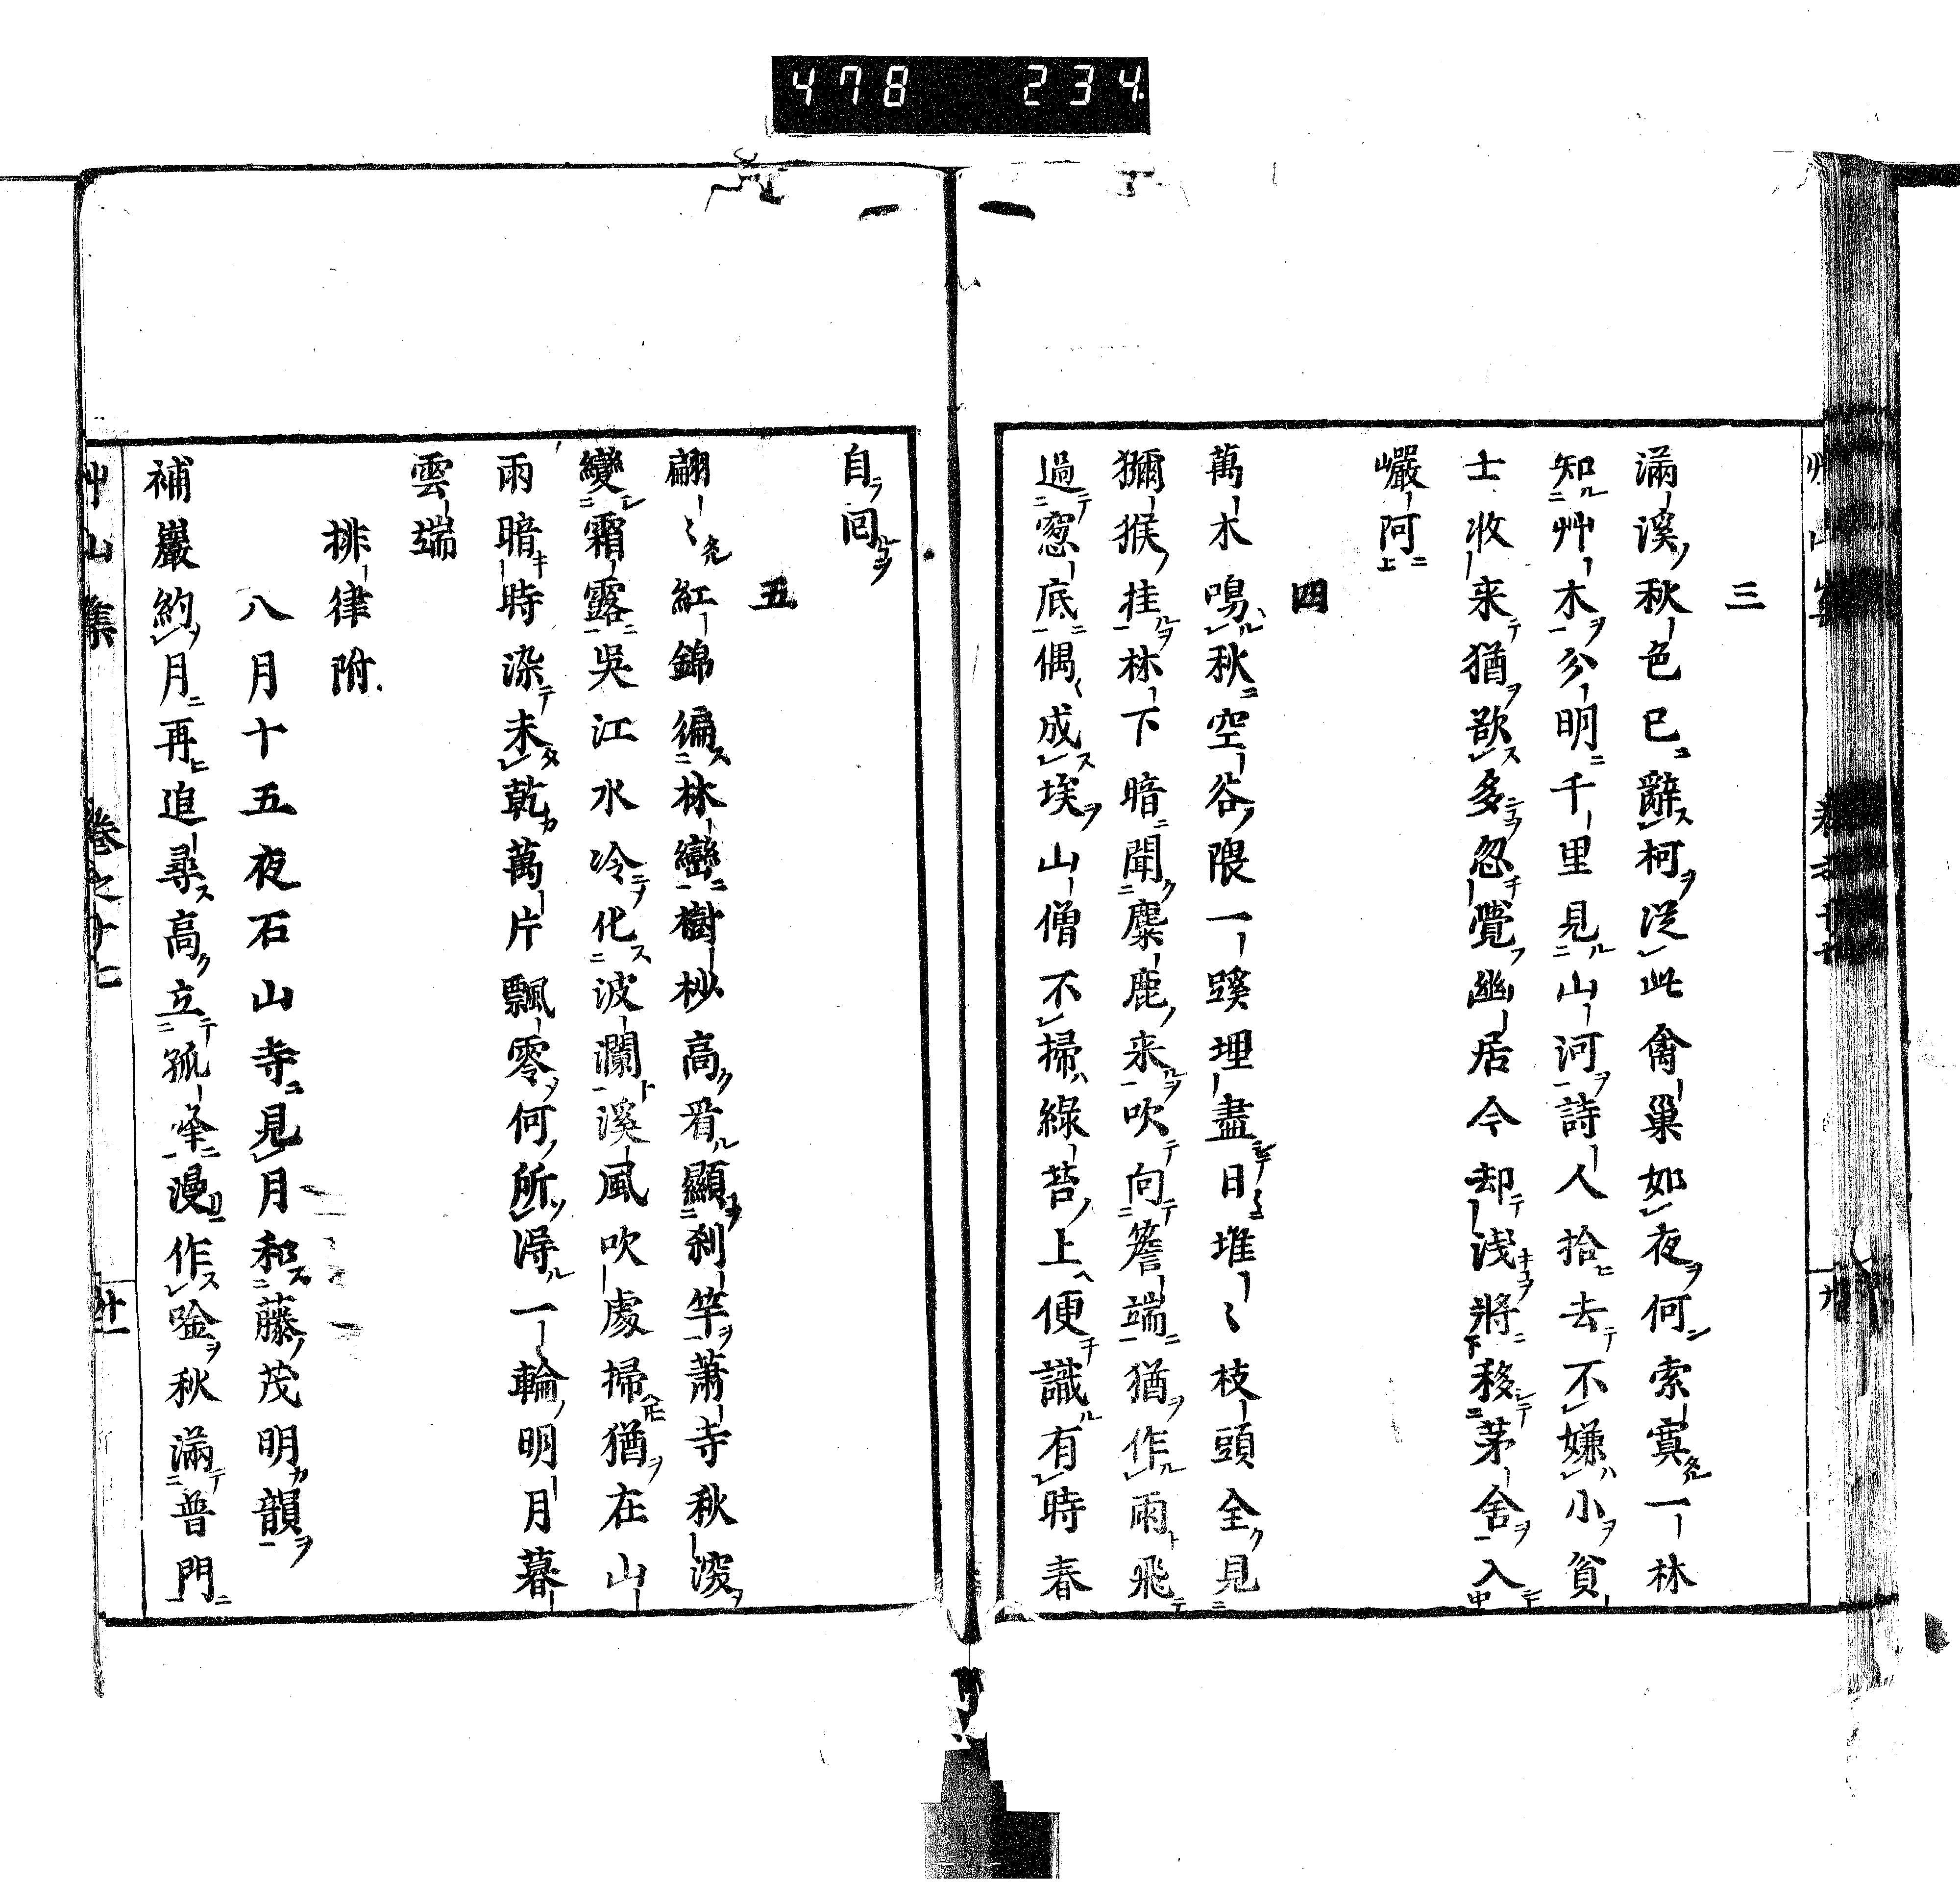 478 234
三
滿溪秋色已辭柯從此禽巢如夜何索寞一林
知艸木分明千里見山河詩人拾去不嫌小貧
士收来猶欲多忽覺幽居今却浅將移茅舍入
巖阿
四
萬木鳴秋空谷隈一蹊埋盡日堆〻枝頭全見
獼猴挂林下暗聞麋鹿来吹向簷端猶作雨飛
過窓底偶成埃山僧不掃綠苔上便識有時春
自回
五
翩〻紅錦徧林巒樹杪高看顯刹竿蕭寺秋深
變霜露吳江水冷化波瀾溪風吹處掃猶在山
雨暗時染未乾萬片飄零何所得一輪明月暮
雲端
排律附
八月十五夜石山寺見月和藤茂明韻
補巖約月再追尋高立孤峯漫作唫秋滿普門
艸山集 卷之十七 廿一